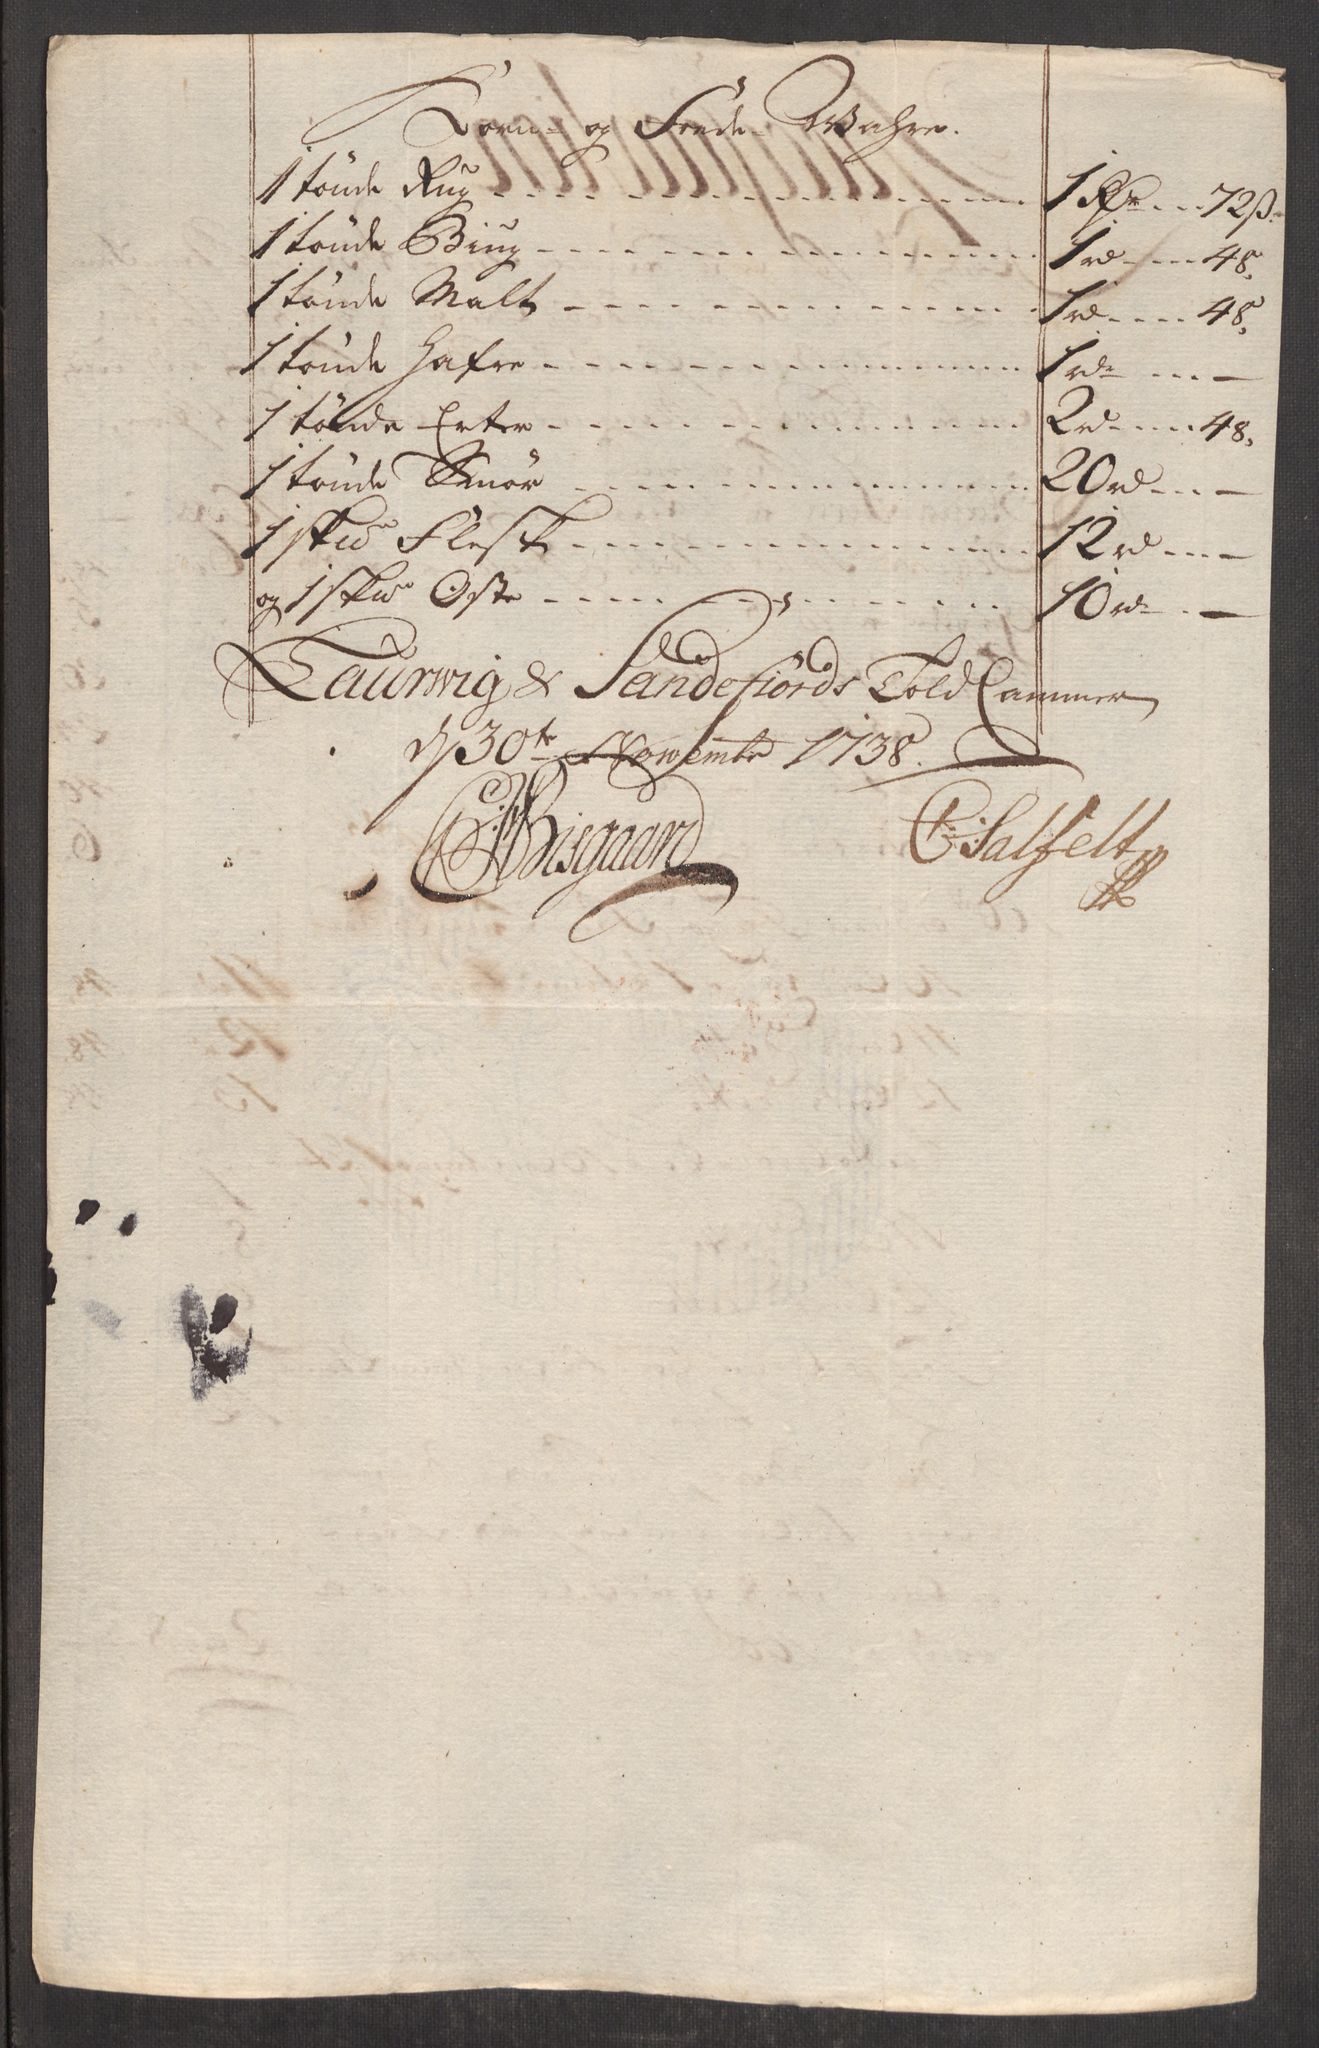 Korn- og Fede- Wahre.
1 tønde Rug 1 Rdr 72ß
1 tønde Biug 1 rd 48,
1 tønde Malt 1 rd 48,
1 tønde Hafre 1 rdr —
1 tønde Erter 2 rd 48,
1 tønde Smør 20 rd —
1 sk℔ Flesk 12 rd —
og 1 sk℔ Oste 10 rdr —
Laurwig & Sandefiords Told Cammer
d 30te Novembr 1738.
Bisgaard C: Salfelt